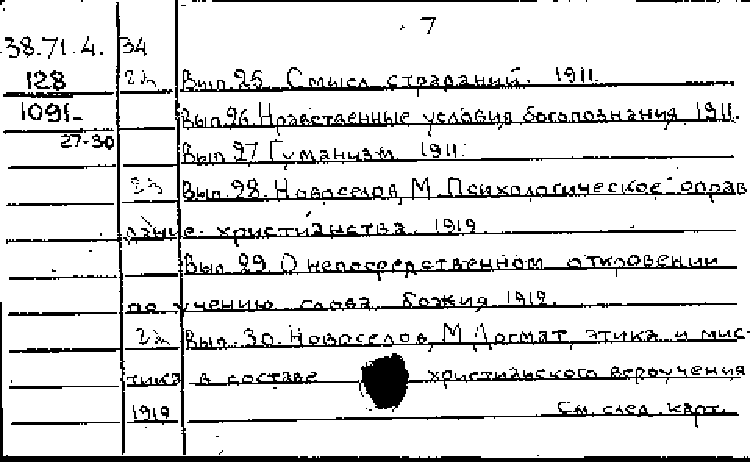 7
38.71.4. 34
128 2л Вып. 25. Смысл страданий. 1911.
1091- Вып. 26. Нравственные условия богопознания 1911.
27-30
Вып. 27 Гуманизм 1911.
Вып. 28. Новоселов, М. Психологическое оправ
дание христианства. 1912.
Вып. 29 О непосредственном откровении
по учению слова божия 1912.
2л Вып. 30. Новоселов, М Догмат, этика и мис-
тика в составе христианского вероучения
1912 См. след. карт.